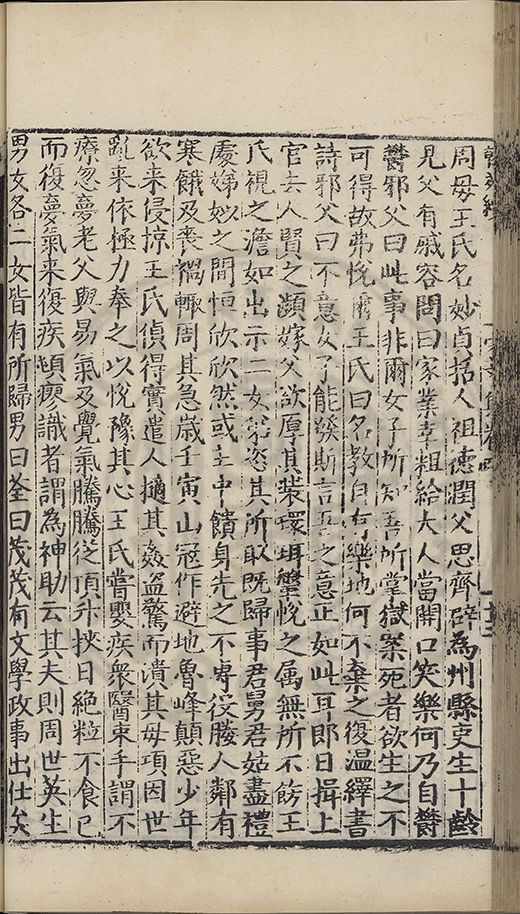 周母王氏名妙貞括人祖德潤父思齊辟為州縣吏生十齡
見父有戚容問曰家業幸粗給大人當開口笑樂何乃自欝
欝邪父曰此事非爾女子所知吾所掌獄案死者欲生之不
可得故弗悅爾王氏曰名教自有樂地何不棄之復温繹書
詩邪父曰不意女子能發斯言吾之意正如此耳即日揖上
官去人賢之瀕嫁父欲厚其裝環珥鞶帨之属無所不飭王
氏視之澹如出示二女弟恣其所取既歸事君舅君姑盡禮
處娣姒之間恒欣欣然或主中饋身先之不專役媵人鄰有
寒餓及喪禍輙周其急歳壬寅山冦作避地魯峰顛惡少年
欲来侵掠王氏偵得實遣人擿其姦盗驚而潰其母項因世
亂来依極力奉之以悅豫其心王氏嘗嬰疾衆醫束手謂不
療忽夢老父與易氣及覺氣騰騰從頂升挾日絶粒不食已
而復夢氣来復疾頓瘳識者謂為神助云其夫則周世英生
男女各二女皆有所歸男曰荃曰茂茂有文學政事出仕矣